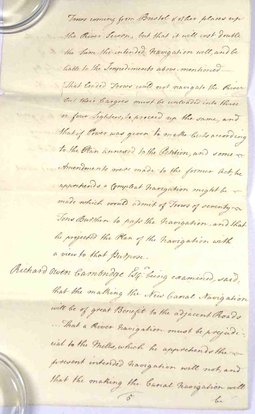 Trows coming from Bristol & other places up
the River Severn, but that it will cost double
the Sum the intended Navigation will, and be
liable to the Impediments above mentioned
That loaded Trows will not navigate the River
but their Cargoes must be unloaded into three
or four Lighters, to proceed up the same, and
that if Power was given to make Cuts according
to the Plan annexed to the Petition, and some
Amendments were made to the former Act, he
apprehends a compleat Navigation might be
made which would admit of Trows of seventy
Tons Burthen to pass the Navigation, and that
he projected the Plan of the Navigation with
a view to that Purpose.
Richard Owen Cambridge Esqr. being examined, said,
that the making the New Canal Navigation
will be of great Benefit to the adjacent Roads
That a River Navigation must be prejudi-
cial to the Mills, which he apprehends the
present intended Navigation will not, and
that the making the Canal Navigation will
5